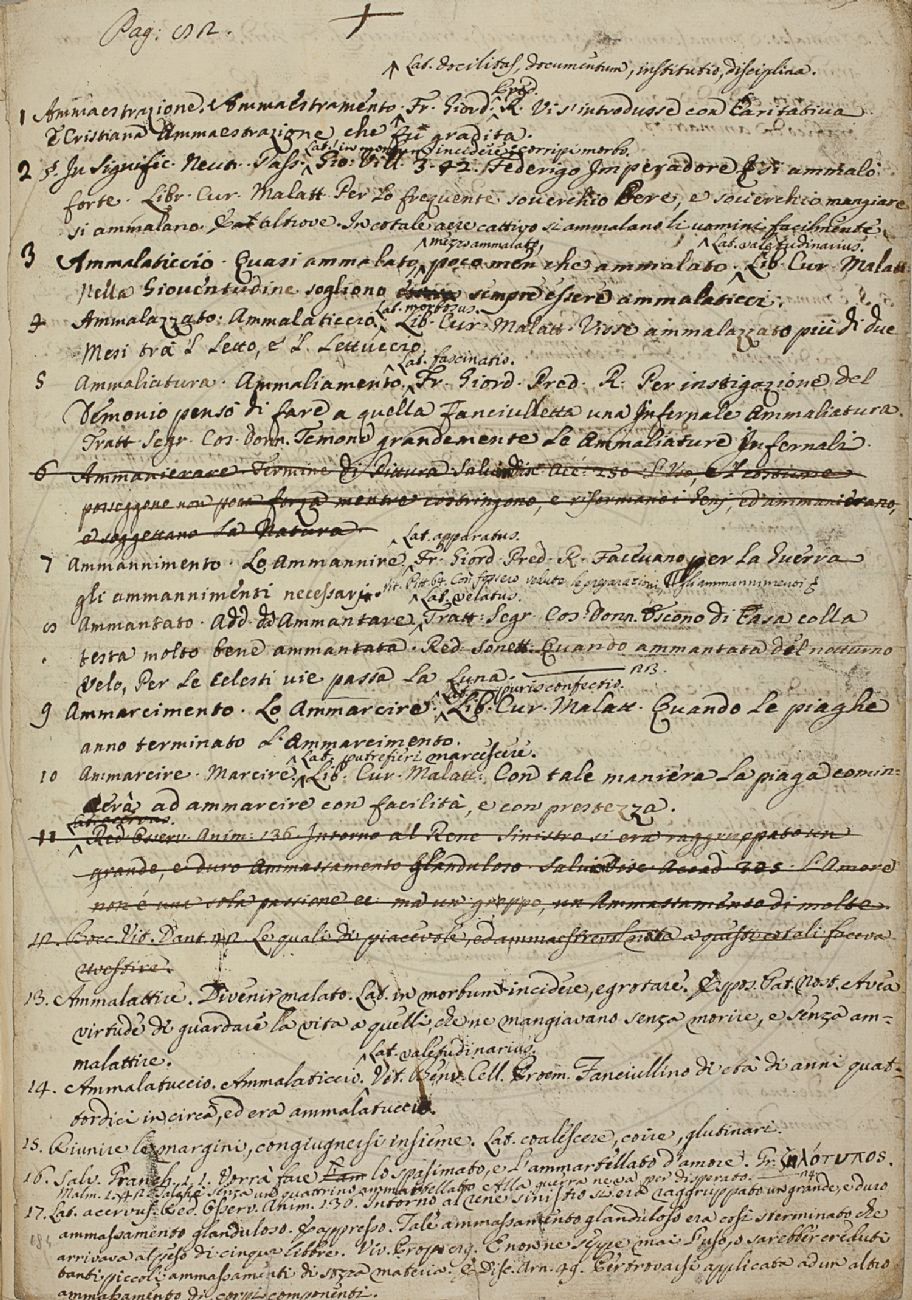 Pag: 82.
Lat. docilitas, documentum, institutio, disciplina.
1 Ammaestrazione. Ammaestramento. Fr. Giord. Pred. R. Vi s'introdusse con Caritativa
e Cristiana Ammaestrazione che fu gradita.
Lat. in morbum incidere, corripi morbo.
2 §. In Signific. Neutr. Pass. Gio. Vill. 3. 42. Federigo Imperadore si ammalò
forte. Libr. Cur. Malatt. Per lo frequente soverchio bere, e soverchio mangiare
si ammalano. Ed altrove. In cotale aere cattivo si ammalano li uomini facilmente
mezzo ammalato, Lat. valetudinarius.
3 Ammalaticcio. Quasi ammalato, poco men che ammalato. Lib. Cur. Malatt.
Nella Gioventudine sogliono sempre essere ammalaticci.
Lat. morbosus.
4 Ammalazzato. Ammalaticcio. Lib. Cur. Malatt. Visse ammalazzato più di due
Mesi tra 'l Letto, e 'l Lettuccio
Lat. fascinatio.
5 Ammaliatura. Ammaliamento. Fr. Giord. Pred. R. Per instigazione del
Demonio pensò di fare a quella Fanciulletta una Infernale Ammaliatura.
Tratt. Segr. Cos. Donn. Temono grandemente le Ammaliature Infernali.
6 Ammanierare Termine di Pittura Salvin. Disc. Acc. 230
posseggono non poca forza mentre costringono, e riformano i Sensi, ed ammanierano,
e soggettano la Natura
Lat. apparatus.
7 Ammannimento. Lo Ammannire. Fr. Giord. Pred. R. Facevano per la Guerra
gli ammannimenti necessarj. Vit. Pitt. 64. Con fresco voluto le preparazioni, gli ammannimenti
Lat. velatus.
8 Ammantato. Add. da Ammantare. Tratt. Segr. Cos. Donn. Escono di Casa colla
testa molto bene ammantata. Red. Sonett. Quando ammantata del notturno
Velo, Per le Celesti vie passa La Luna.
Lat. purisconfectio.
9 Ammarcimento. Lo Ammarcire. Lib. Cur. Malatt. Quando le piaghe
anno terminato l'Ammarcimento.
Lat. putrefieri marcescere.
10 Ammarcire. Marcire. Lib. Cur. Malatt. Con tale maniera la piaga comin-
cerà ad ammarcire con facilità, e con prestezza.
Lat. acervus.
11 Red. Osserv. Anim. 136. Intorno al Rene Sinistro si era raggruppato un
grande, e duro Ammassamento Glanduloso. Salvin. Disc. Accad. 325. L'Amore
non è una sola passione ec. ma un groppo, un Ammassamento di molte.
12. Bocc. Vit. Dant. Le quali di piacevole, ed ammaestrevol nota a questi cotali faceva
vvestire.
13. Ammalattire. Divenir malato. Lat. in morbum incidere, egrotare. Espos. Pat. Nost. Avea
virtude di guardare la vita a quelli, che ne mangiavano senza morire, e senza am=
malattire.
Lat. valetudinarius.
14. Ammalatuccio. Ammalaticcio. Vit. Benv. Cell. Proem. Fanciullino di età di anni quat-
tordici in circa, ed era ammalatuccio.
15. Riunire le margini, congiugnersi insieme. Lat. coalescere, coire, glutinari.
16. Salv. Franch. 1. 1. Vorrà fare lo spasimato, e l'ammartellato d'amore.
Malm. senza un quattrino ammartellato Alla guerra ne va per disperato.
17. Lat. acervus. Red. Osserv. Anim. 136. Intorno al rene sinistro si era raggruppato un grande, e duro
ammassamento glanduloso. E appresso. Tale ammassamento glanduloso era così sterminato che
arrivava al peso di cinque libbre. Viv. Prop. 119. E non ne seppe mai l'uso, o sarebber creduti
tanti piccoli ammassamenti di sozza materia. E Disc. Arn. 49. Per trovarsi applicata ad un altro
ammassamento di corpi componenti.